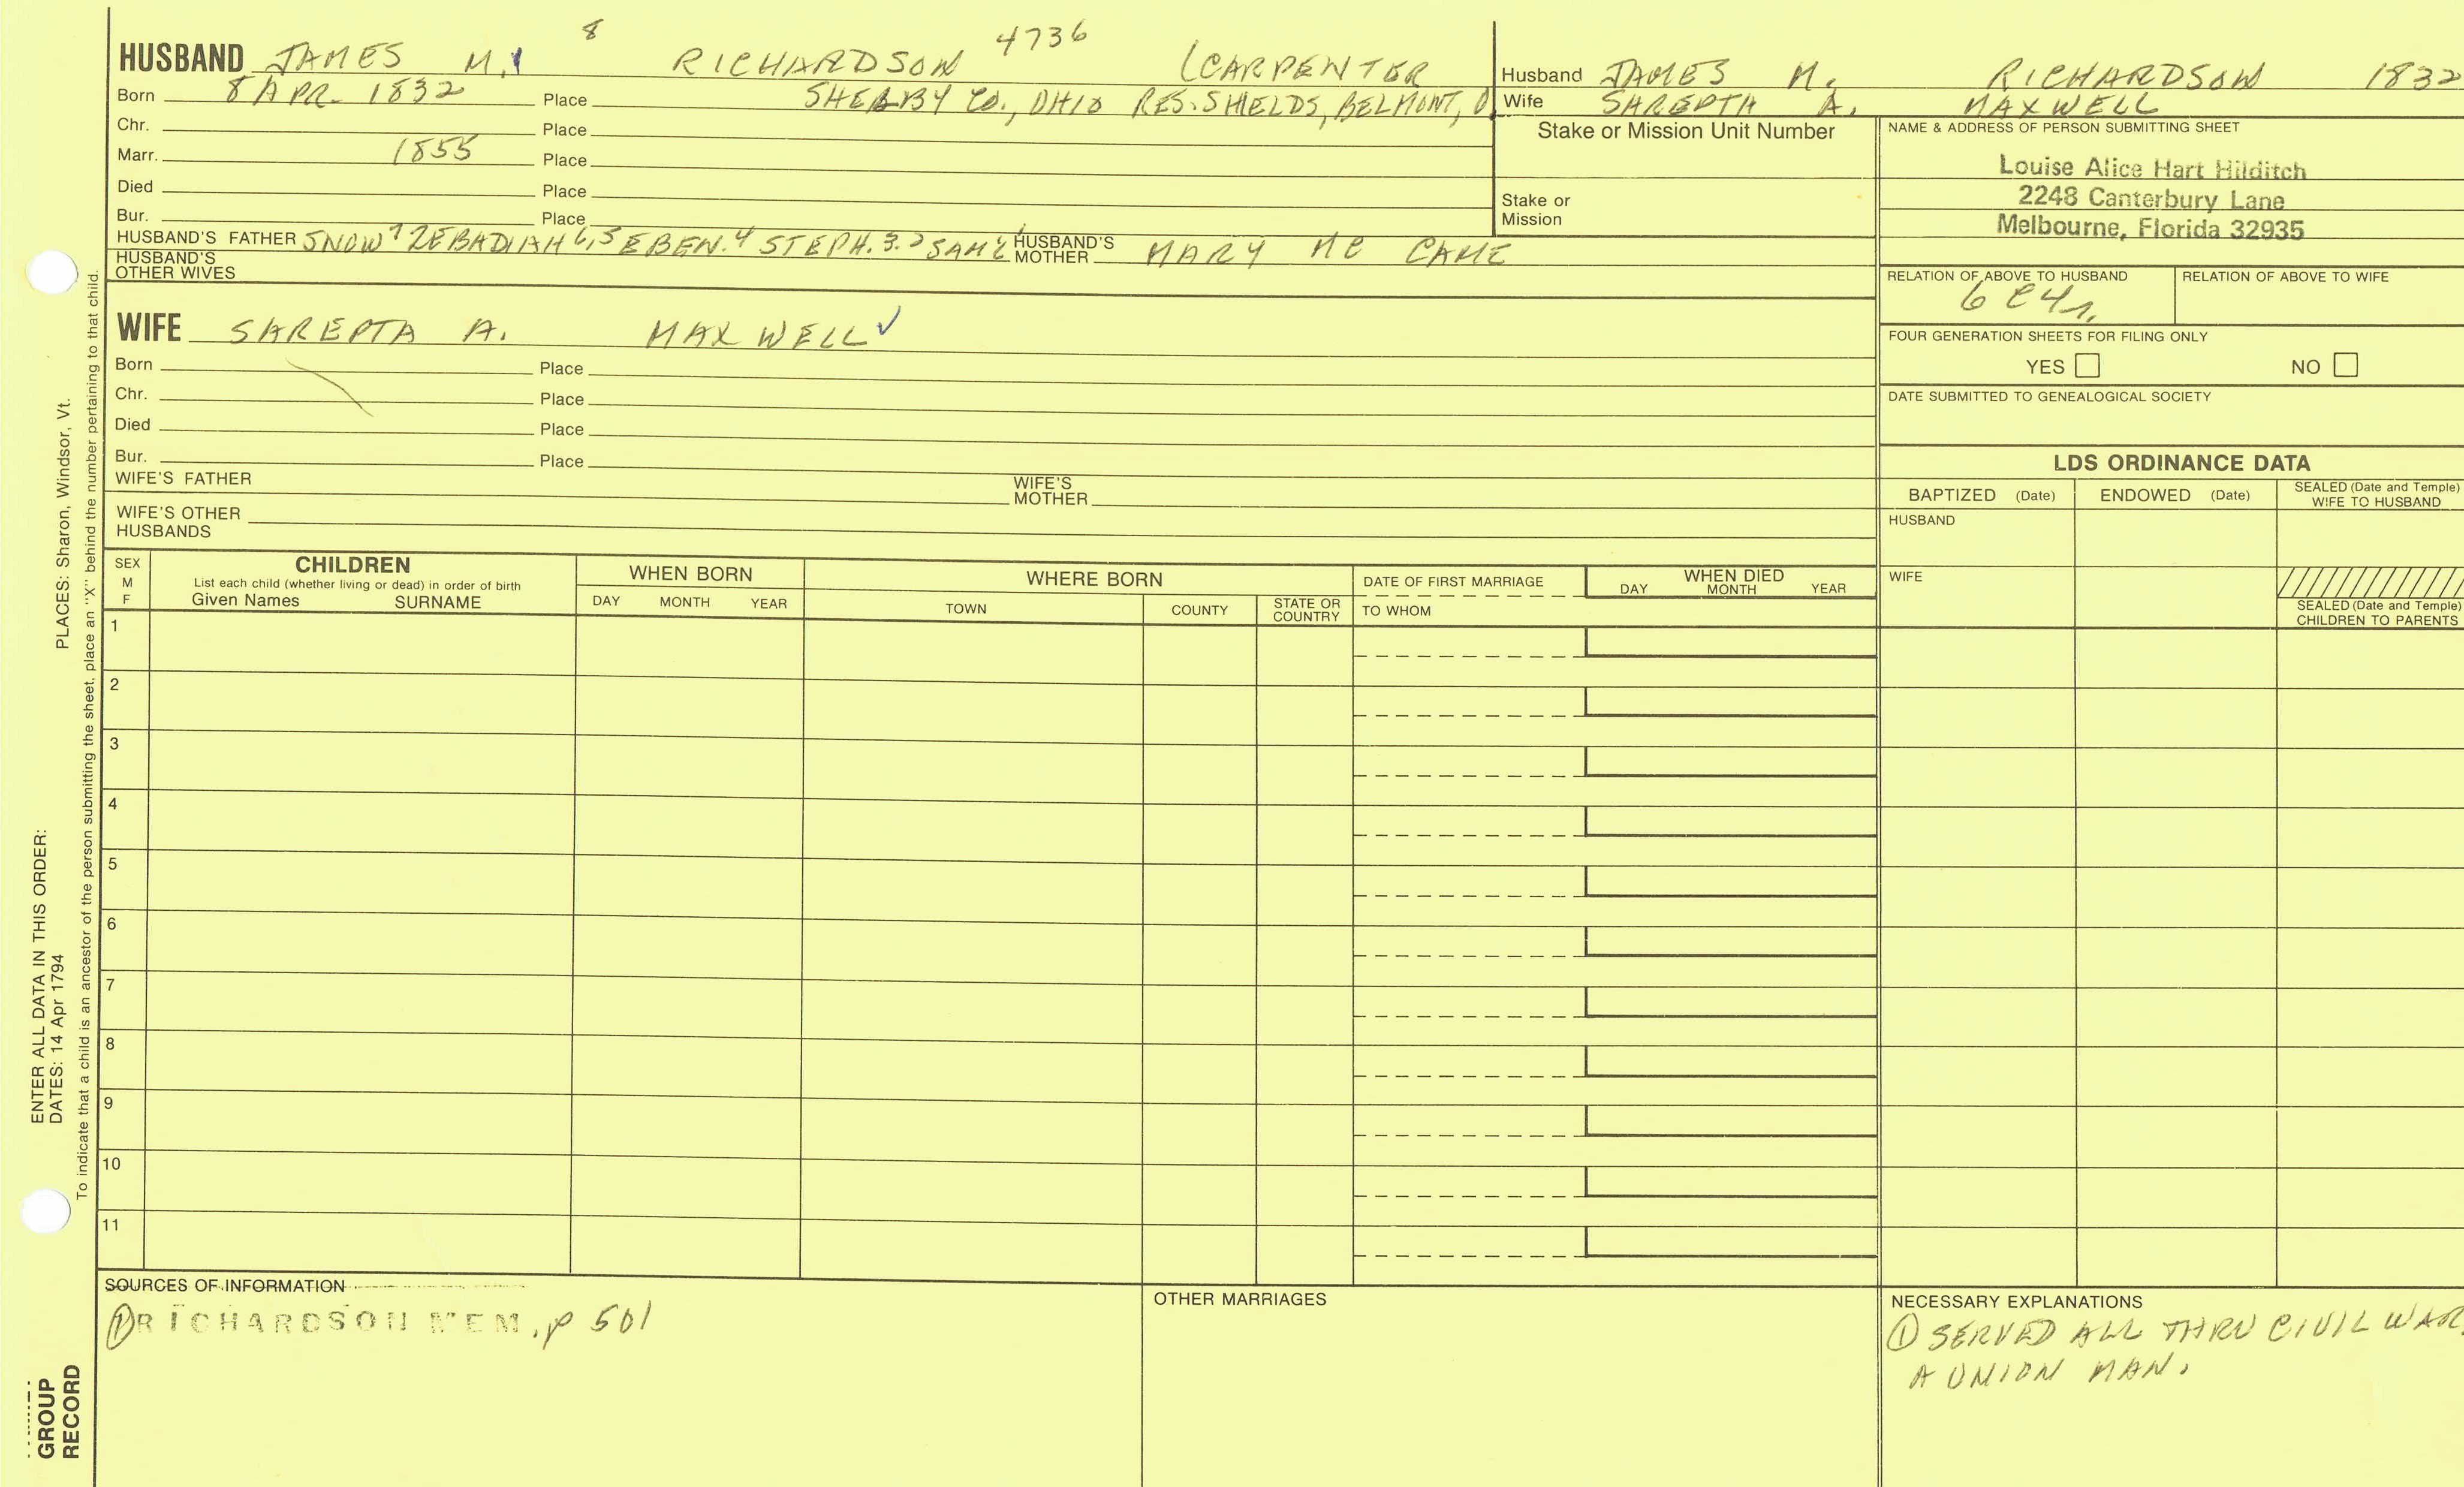 8 4736
HUSBAND JAMES M. RICHARDSON (CARPENTER
Born 8 APR. 1832 Place SHELBY CO., OHIO RES. SHIELDS, BELMONT, O
Chr. Place
Marr. 1855 Place
Died Place
Bur. Place
HUSBAND'S FATHER SNOW 7 ZEBADIAH 6,5 EBEN. 4 STEPH. 3. 2 SAM'L 1 HUSBAND'S MOTHER MARY MC CAME
HUSBAND'S OTHER WIVES
WIFE SAREPTA A. MAXWELL ✓
Born Place
Chr. Place
Died Place
Bur. Place
WIFE'S FATHER WIFE'S MOTHER
WIFE'S OTHER HUSBANDS
Husband JAMES M. RICHARDSON 1832
Wife SAREPTA A. MAXWELL
Stake or Mission Unit Number
Stake or
Mission
NAME & ADDRESS OF PERSON SUBMITTING SHEET
Louise Alice Hart Hilditch
2248 Canterbury Lane
Melbourne, Florida 32935
RELATION OF ABOVE TO HUSBAND RELATION OF ABOVE TO WIFE
6 C4r.
FOUR GENERATION SHEETS FOR FILING ONLY
YES NO
DATE SUBMITTED TO GENEALOGICAL SOCIETY
LDS ORDINANCE DATA
BAPTIZED (Date) ENDOWED (Date) SEALED (Date and Temple) WIFE TO HUSBAND
HUSBAND
WIFE
SEALED (Date and Temple)
CHILDREN TO PARENTS
SEX M F
CHILDREN
List each child (whether living or dead) in order of birth
Given Names SURNAME
WHEN BORN
DAY MONTH YEAR
WHERE BORN
TOWN COUNTY STATE OR COUNTRY
DATE OF FIRST MARRIAGE
TO WHOM
WHEN DIED
DAY MONTH YEAR
1
2
3
4
5
6
7
8
9
10
11
SOURCES OF INFORMATION
① RICHARDSON MEM. p 501
OTHER MARRIAGES
NECESSARY EXPLANATIONS
① SERVED ALL THRU CIVIL WAR,
A UNION MAN.
ENTER ALL DATA IN THIS ORDER:
DATES: 14 Apr 1794 PLACES: Sharon, Windsor, Vt.
To indicate that a child is an ancestor of the person submitting the sheet, place an "X" behind the number pertaining to that child.
GROUP
RECORD